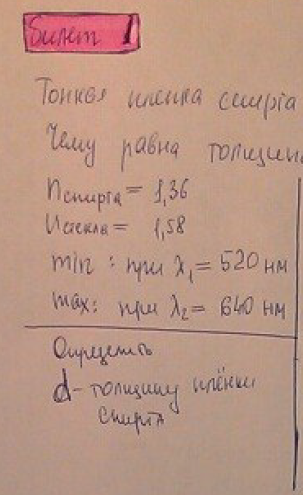 Билет 1
Тонкая пленка спирта
Чему равна толщин
nспирта = 1,36
nстекла = 1,58
min : при λ₁ = 520 нм
max: при λ₂ = 640 нм
Определить
d - толщину плёнки
спирта